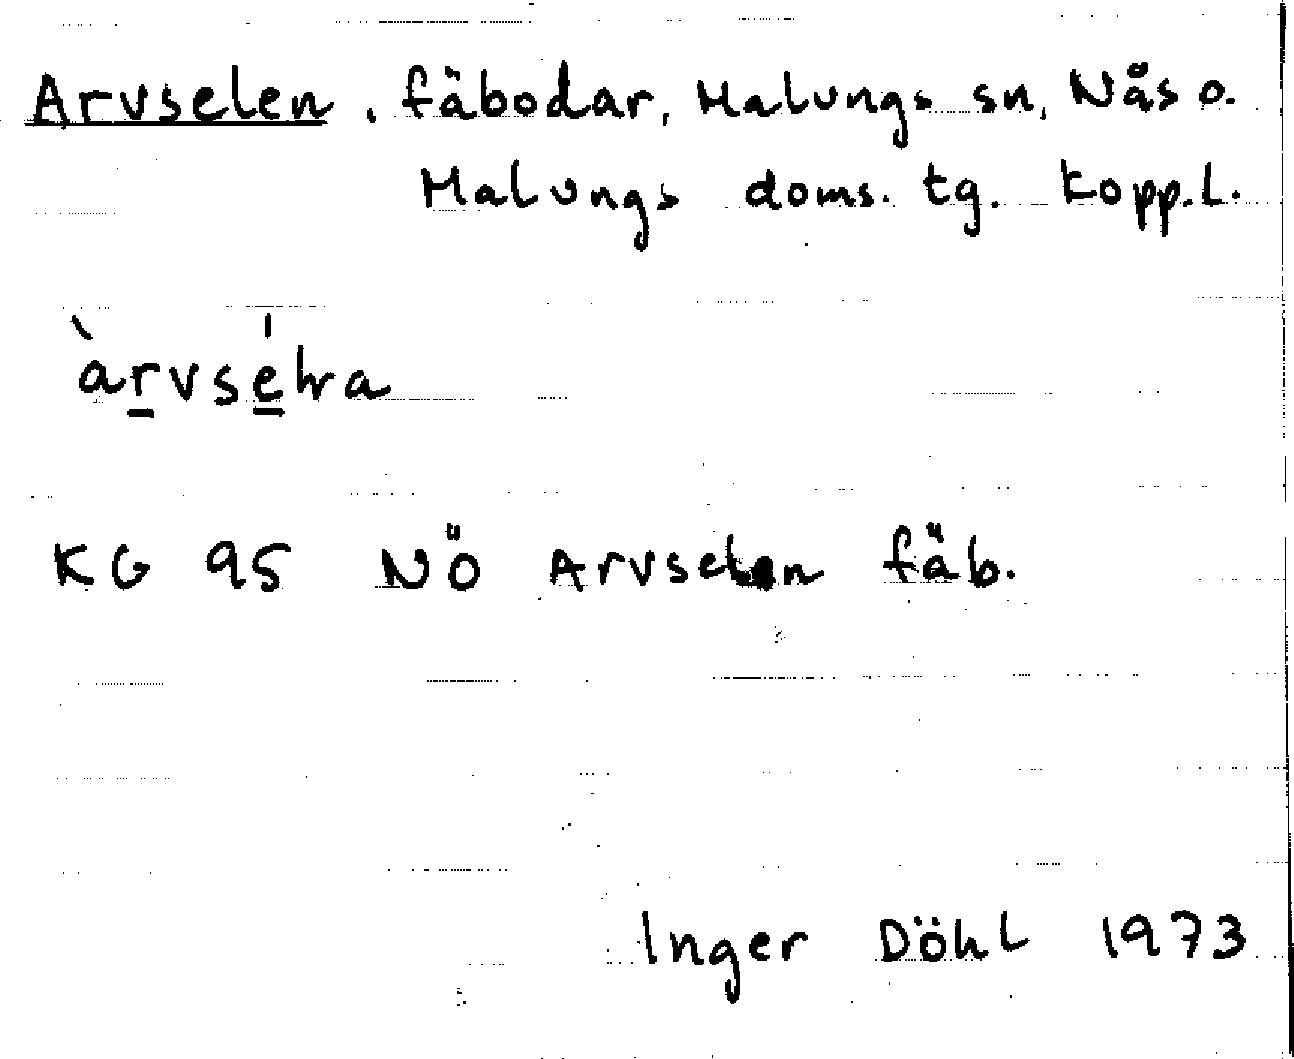 Arvselen, fäbodar, Malungs sn, Nås o.
Malungs doms. tg. Kopp.l.
àrvsélra
KG 95 NÖ Arvselen fäb.
Inger Döhl 1973